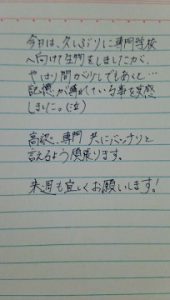 今日は、久しぶりに専門学校
へ向けて生物をしましたが、
やはり間が少しでもあくと…
記憶が薄れている事を実感
しました。(泣)
高認、専門 共にバッチリと
言えるよう頑張ります。
来週も宜しくお願いします!